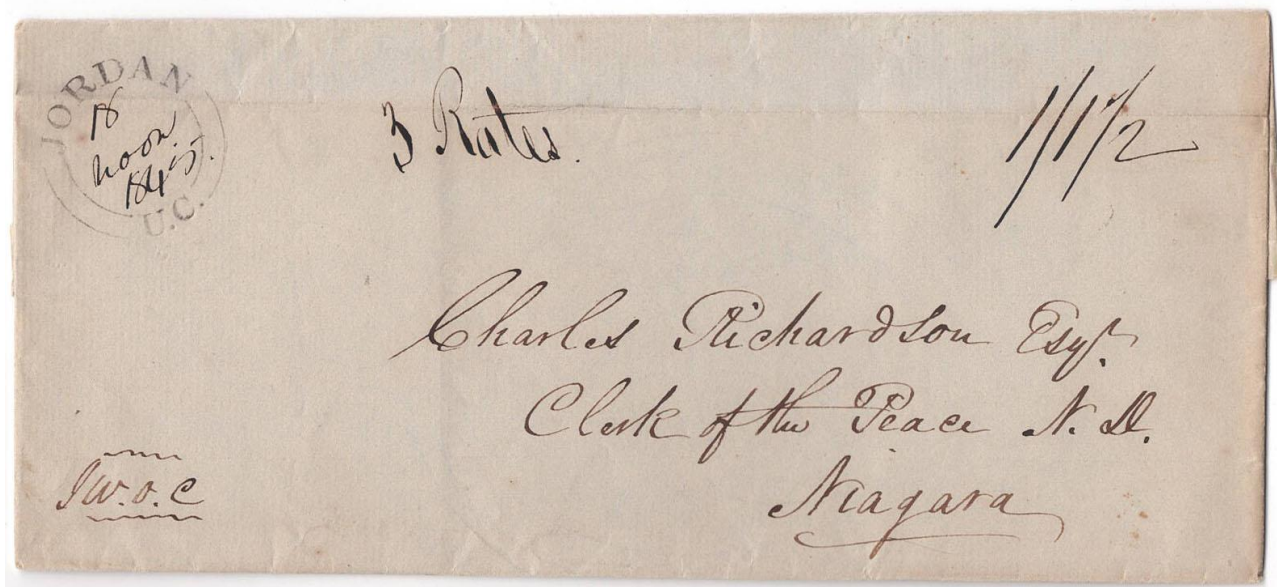 JORDAN
18
Noon
1845.
U.C.
3 Rates.
1/1 1/2
Charles Richardson Esqr.
Clerk of the Peace N. D.
Niagara